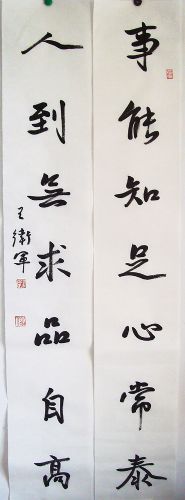 事能知足心常泰
人到無求品自高
王衛軍